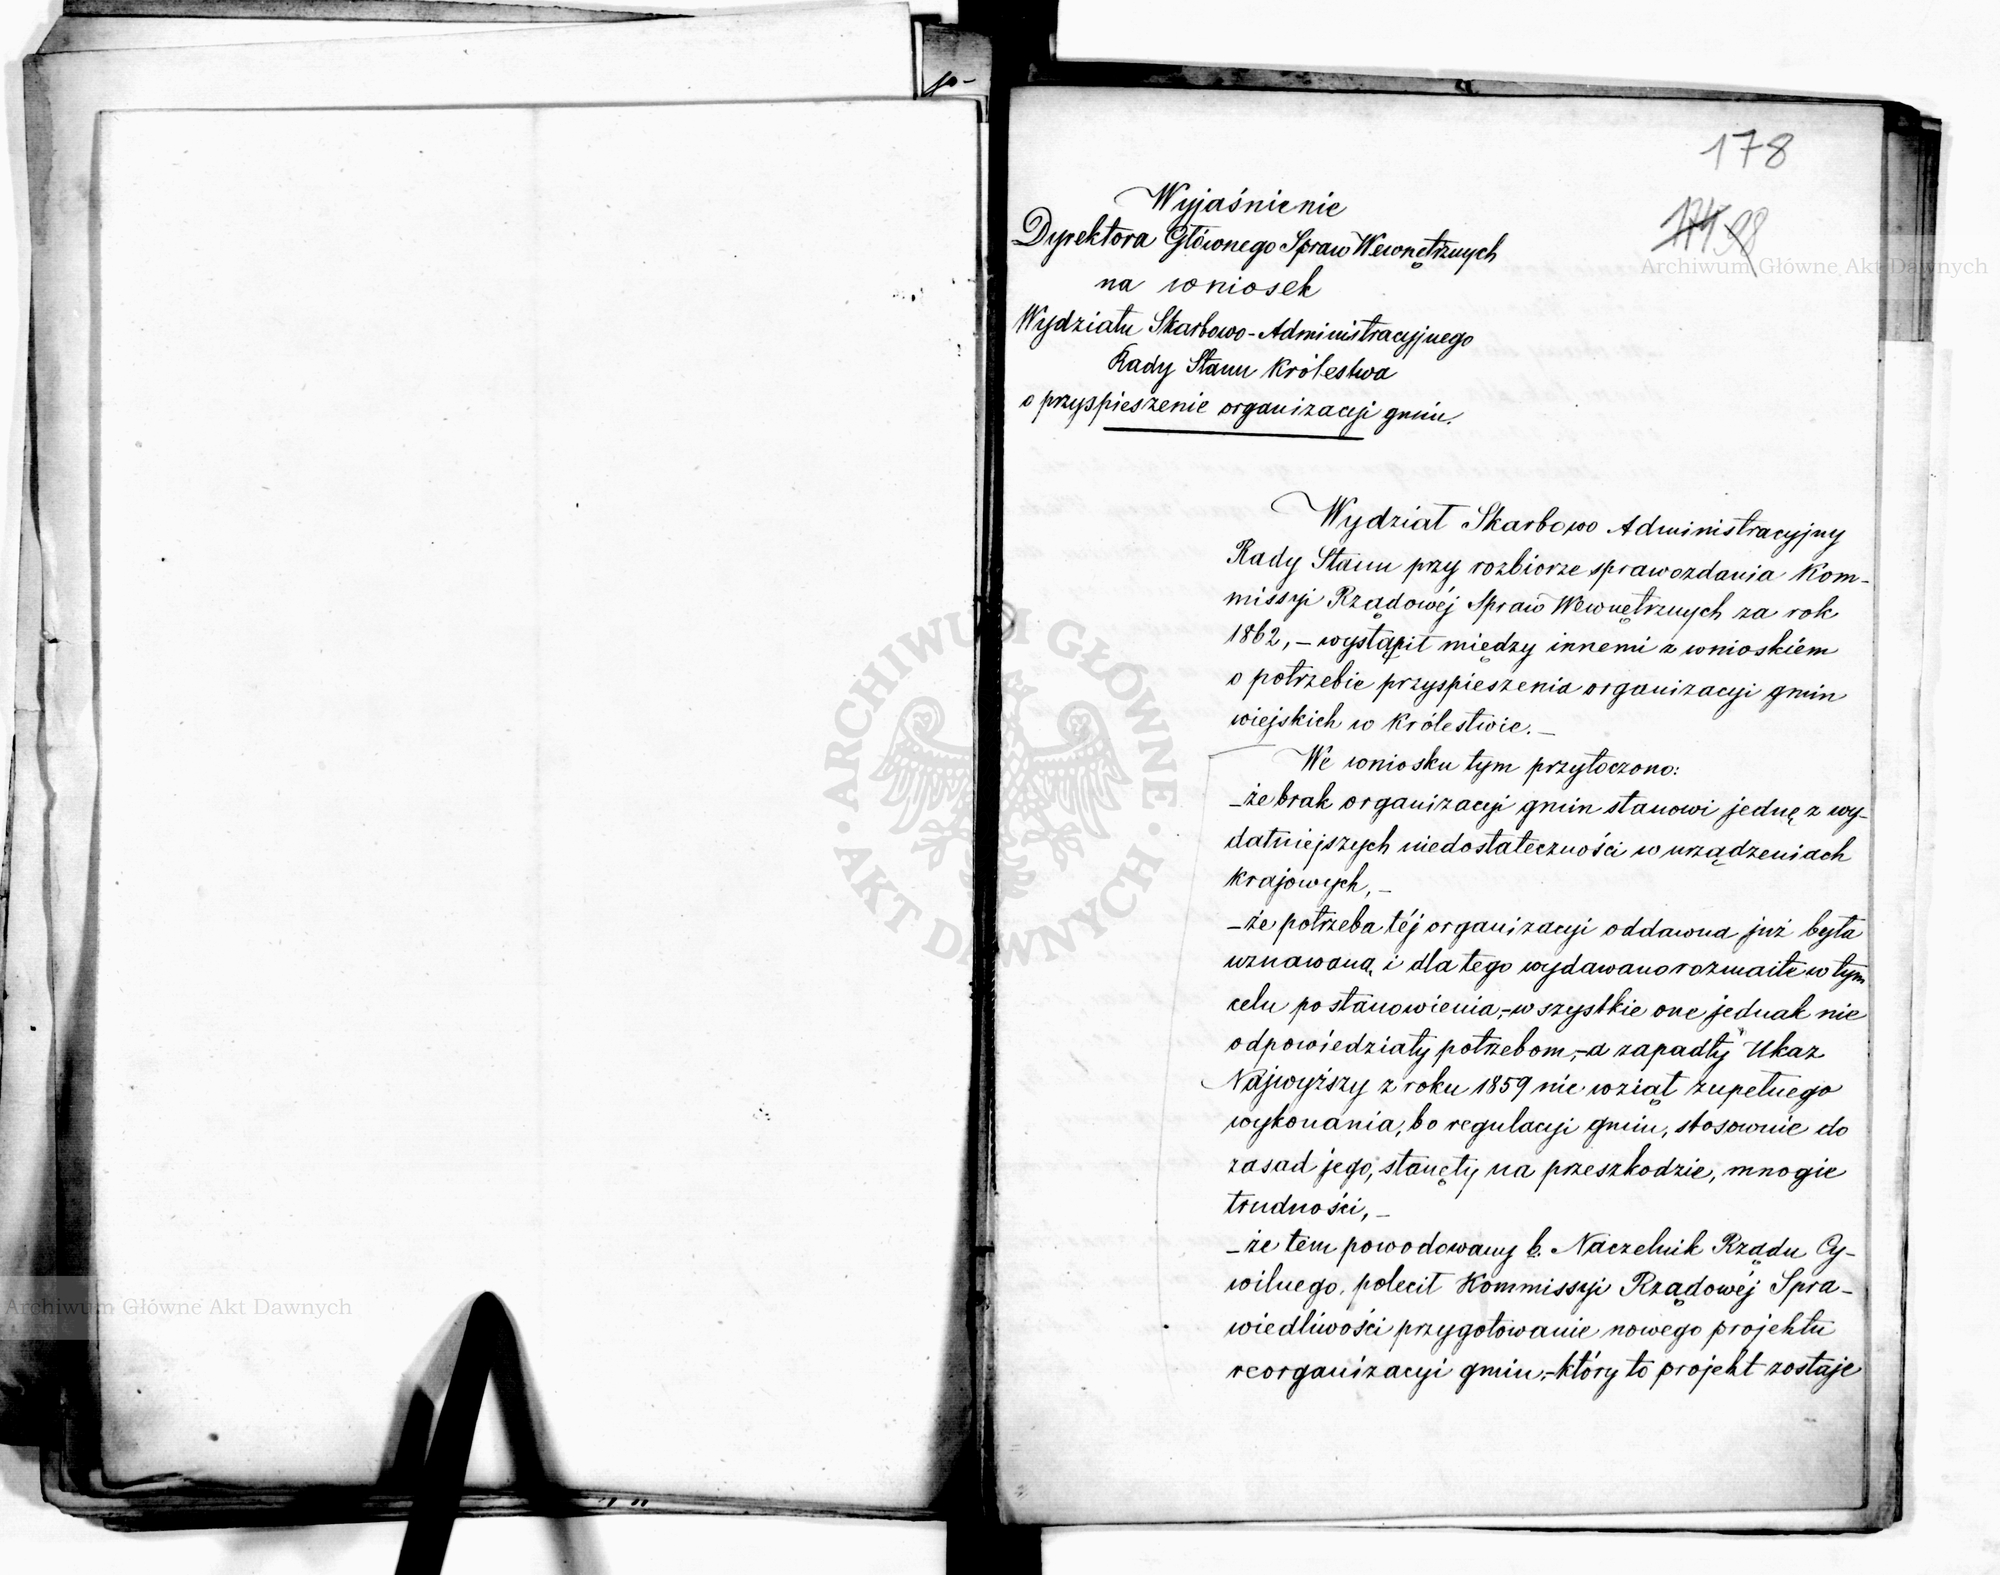 178
174 98
Wyjaśnienie
Dyrektora Głównego Spraw Wewnętrznych
na wniosek
Wydziału Skarbowo-Administracyjnego
Rady Stanu Królestwa
o przyspieszenie organizacyi gmin.
Wydział Skarbowo Administracyjny
Rady Stanu przy rozbiorze sprawozdania Kom-
missyi Rządowéj Spraw Wewnętrznych za rok
1862, – wystąpił między innemi z wnioskiém
o potrzebie przyspieszenia organizacyi gmin
wiejskich w Królestwie. –
We wniosku tym przytoczono:
– że brak organizacyi gmin stanowi jednę z wy-
datniejszych niedostateczności w urządzeniach
krajowych, –
– że potrzeba téj organizacyi oddawna już była
uznawaną i dla tego wydawano rozmaite w tym
celu postanowienia, – wszystkie one jednak nie
odpowiedziały potrzebom, – a zapadły Ukaz
Najwyższy z roku 1859 nie wziął zupełnego
wykonania, bo regulacyi gmin, stosownie do
zasad jego, stanęły na przeszkodzie, mnogie
trudności, –
– że tem powodowany b. Naczelnik Rządu Cy-
wilnego, polecił Kommissyi Rządowéj Spra-
wiedliwości przygotowanie nowego projektu
reorganizacyi gmin, – który to projekt zostaje
ARCHIWUM GŁÓWNE · AKT DAWNYCH ·
Archiwum Główne Akt Dawnych
Archiwum Główne Akt Dawnych